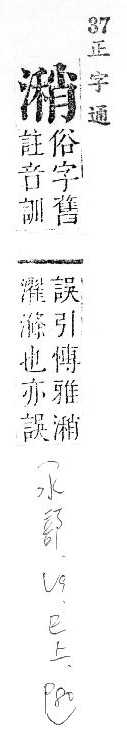 37正字通
潲
俗字舊
註音訓
誤引愽雅潲
濯滌也亦誤
(水部、V9、巳上、P80)